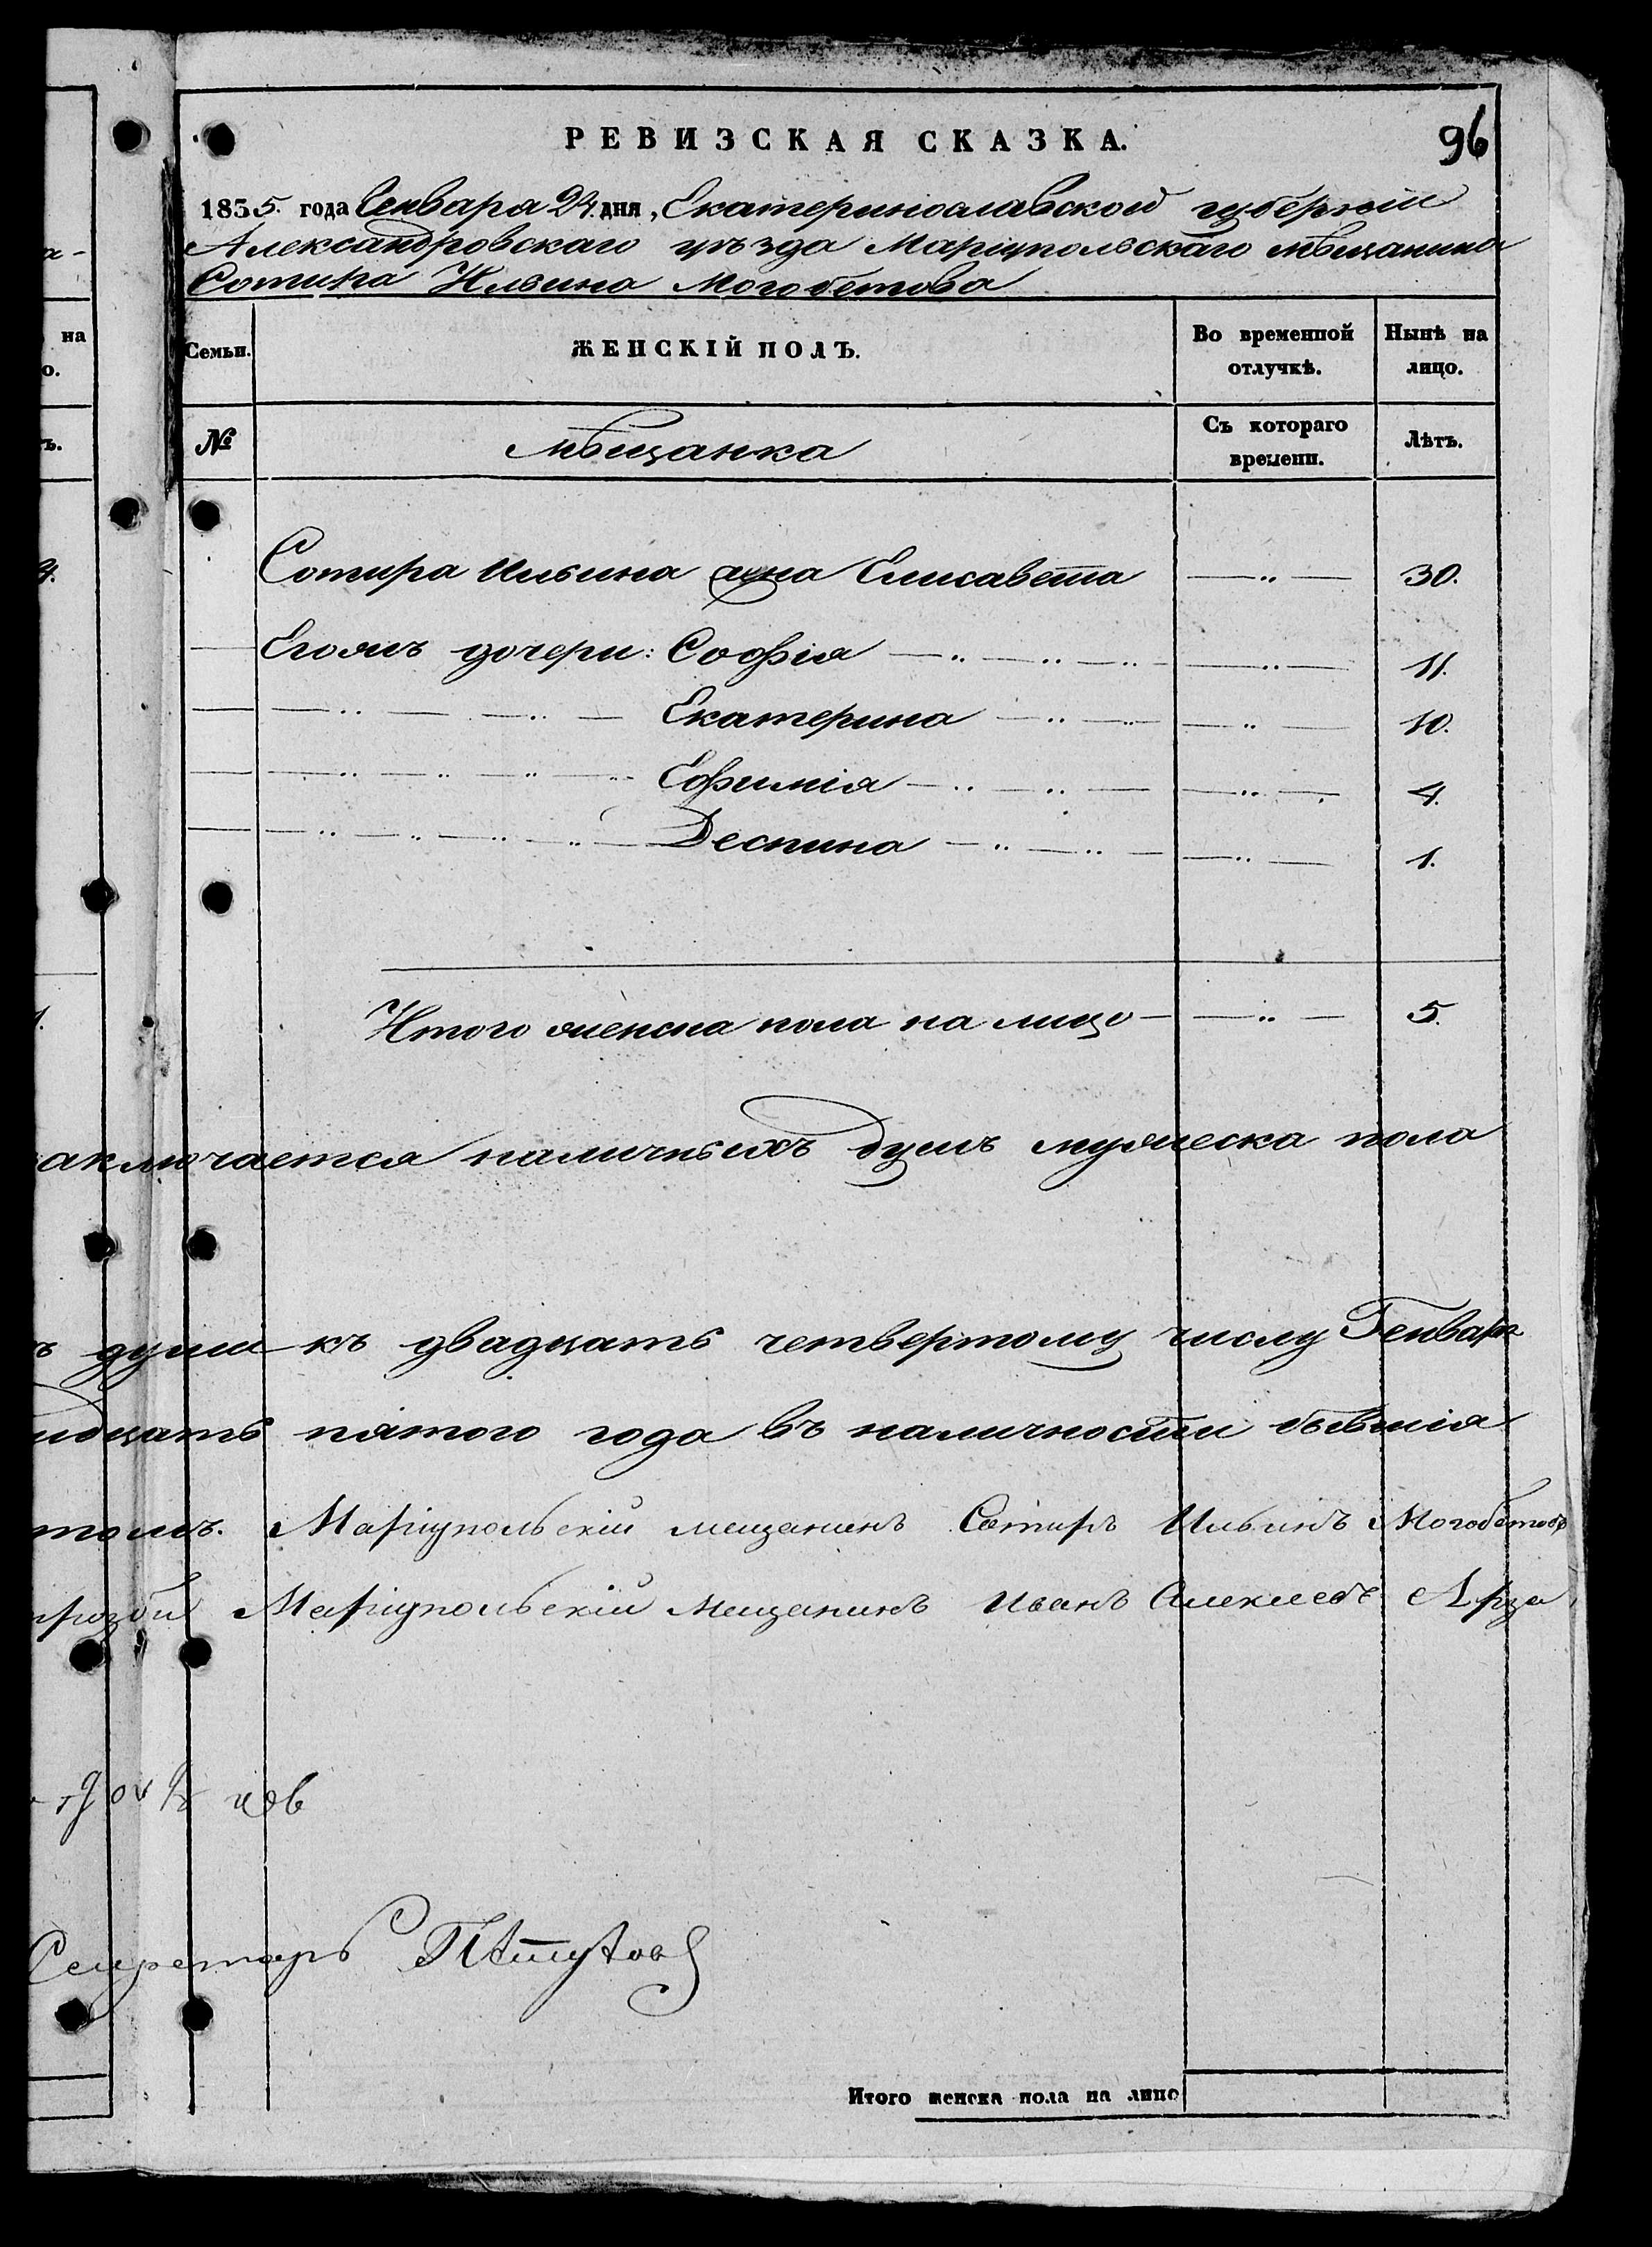 РЕВИЗСКАЯ СКАЗКА.
96
1835. года Генваря 24. дня, Екатеринославской губерніи
Александровскаго уѣзда Маріупольскаго мѣщанина
Сотира Ильина Могобетова
на
о.
Семьи.
ЖЕНСКІЙ ПОЛЪ.
Во временной отлучкѣ.
Нынѣ на лицо.
ъ.
№
мѣщанка
Съ котораго времени.
Лѣтъ.
Сотира Ильина жена Елисавета — „ — 30.
Егожъ дочери: Софія — „ — „ — „ — 11.
Екатерина — „ — „ — 10.
Ефимія — „ — „ — 4.
Деспина — „ — „ — 1.
Итого женска пола на лицо — „ — 5.
аключается наличныхъ душъ мужеска пола
ъ души къ двадцать четвертому числу Генваря
идцать пятого года въ наличности бывшія
томъ. Маріупольскій мещанинъ Сотиръ Ильинъ Могобетовъ
прозби Маріупольскій мещанинъ Иванъ Алексеевъ
Секретарь
Итого женска пола на лицо